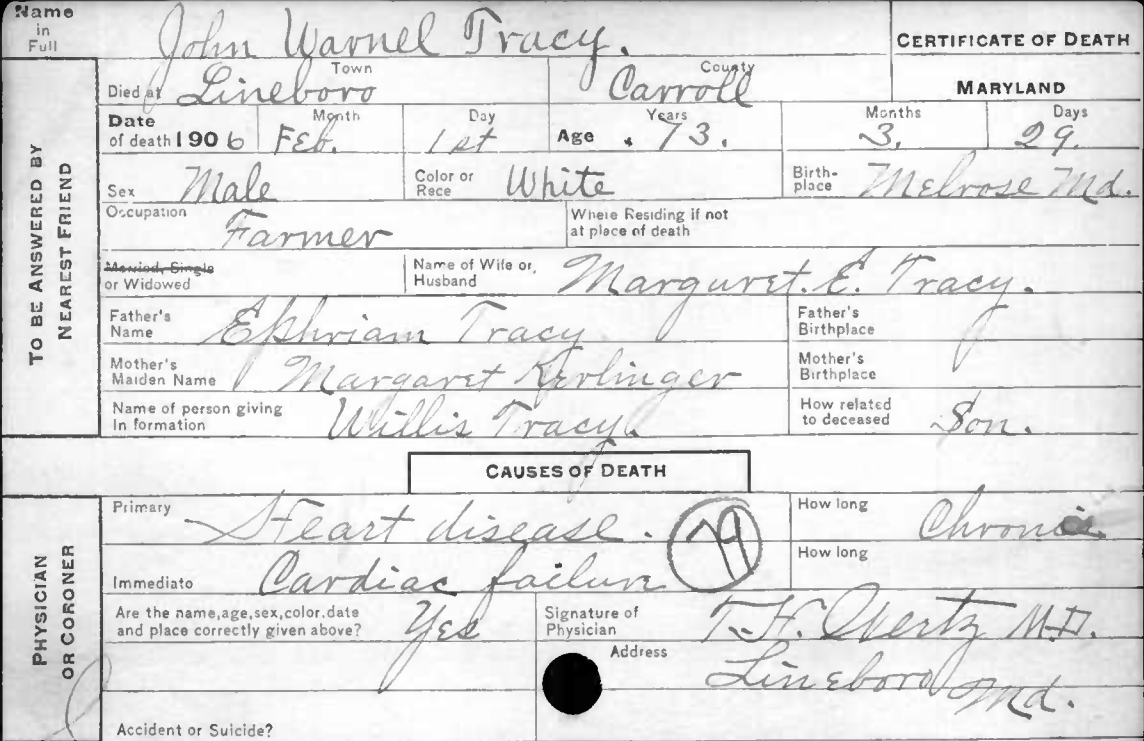 Name in Full John Warnel Tracy.
CERTIFICATE OF DEATH
MARYLAND
TO BE ANSWERED BY NEAREST FRIEND
Died at Lineboro Town Carroll County
Date of death 1906 Month Feb. Day 1st Age Years 73. Months 3, Days 29.
Sex Male Color or Race White Birth-place Melrose Md.
Occupation Farmer Where Residing if not at place of death
Married, Single or Widowed Name of Wife or Husband Margaret. E. Tracy.
Father's Name Ephriam Tracy Father's Birthplace
Mother's Maiden Name Margaret Kerlinger Mother's Birthplace
Name of person giving In formation Willis Tracy. How related to deceased Son.
CAUSES OF DEATH
PHYSICIAN OR CORONER
Primary Heart disease. 79 How long Chronic
Immediate Cardiac failure How long
Are the name, age, sex, color, date and place correctly given above? Yes Signature of Physician T.H. Wertz M.D.
Address Lineboro Md.
Accident or Suicide?